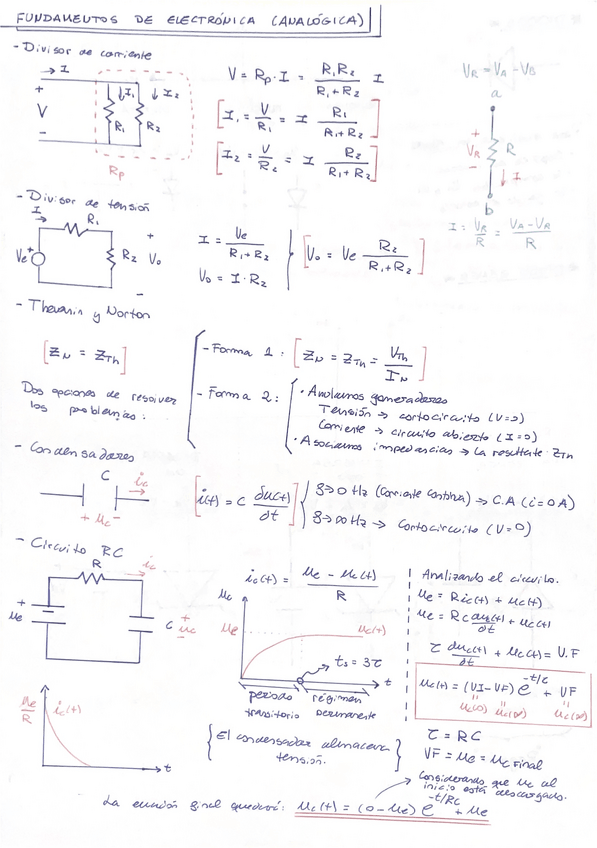 FUNDAMENTOS DE ELECTRÓNICA (ANALÓGICA)
- Divisor de corriente
→ I
+
V
-
↓I₁ ↓I₂
R₁ R₂
Rp
V = Rp · I = R₁R₂ / (R₁+R₂) I
[I₁ = V/R₁ = I R₁ / (R₁+R₂)]
[I₂ = V/R₂ = I R₂ / (R₁+R₂)]
VR = VA - VB
a
+
VR
-
R
↓ I
b
I = VR/R = (VA - VR)/R
- Divisor de tensión
I
R₁
Ve
+
R₂
+
Vo
-
I = Ve / (R₁+R₂)
Vo = I · R₂
[Vo = Ve R₂ / (R₁+R₂)]
- Thevenin y Norton
[ZN = ZTh]
Dos opciones de resolver
los problemas:
- Forma 1: [ZN = ZTh = VTh / IN]
- Forma 2:
· Anulamos generadores
Tensión → cortocircuito (V=0)
Corriente → circuito abierto (I=0)
· Asociamos impedancias → La resultante ZTh
- Condensadores
C
ic
+ uc -
[i(t) = C du(t)/dt]
f→0 Hz (Corriente continua) → C.A (i=0A)
f→∞ Hz → Cortocircuito (V=0)
- Circuito RC
R
ic
+
ue
-
C
+
uc
-
ic(t) = (ue - uc(t)) / R
uc
ue
uc(t)
ts = 3τ
t
periodo
transitorio
régimen
permanente
{El condensador almacena
tensión.}
ue/R
ic(t)
t
Analizando el circuito.
ue = Ric(t) + uc(t)
ue = RC duc(t)/dt + uc(t)
τ duc(t)/dt + uc(t) = V.F
uc(t) = (VI-VF) e^(-t/τ) + VF
uc(0) uc(∞) uc(∞)
τ = RC
VF = ue = uc final
Considerando que uc al
inicio está descargado.
La ecuación final quedará: uc(t) = (0-ue) e^(-t/RC) + ue